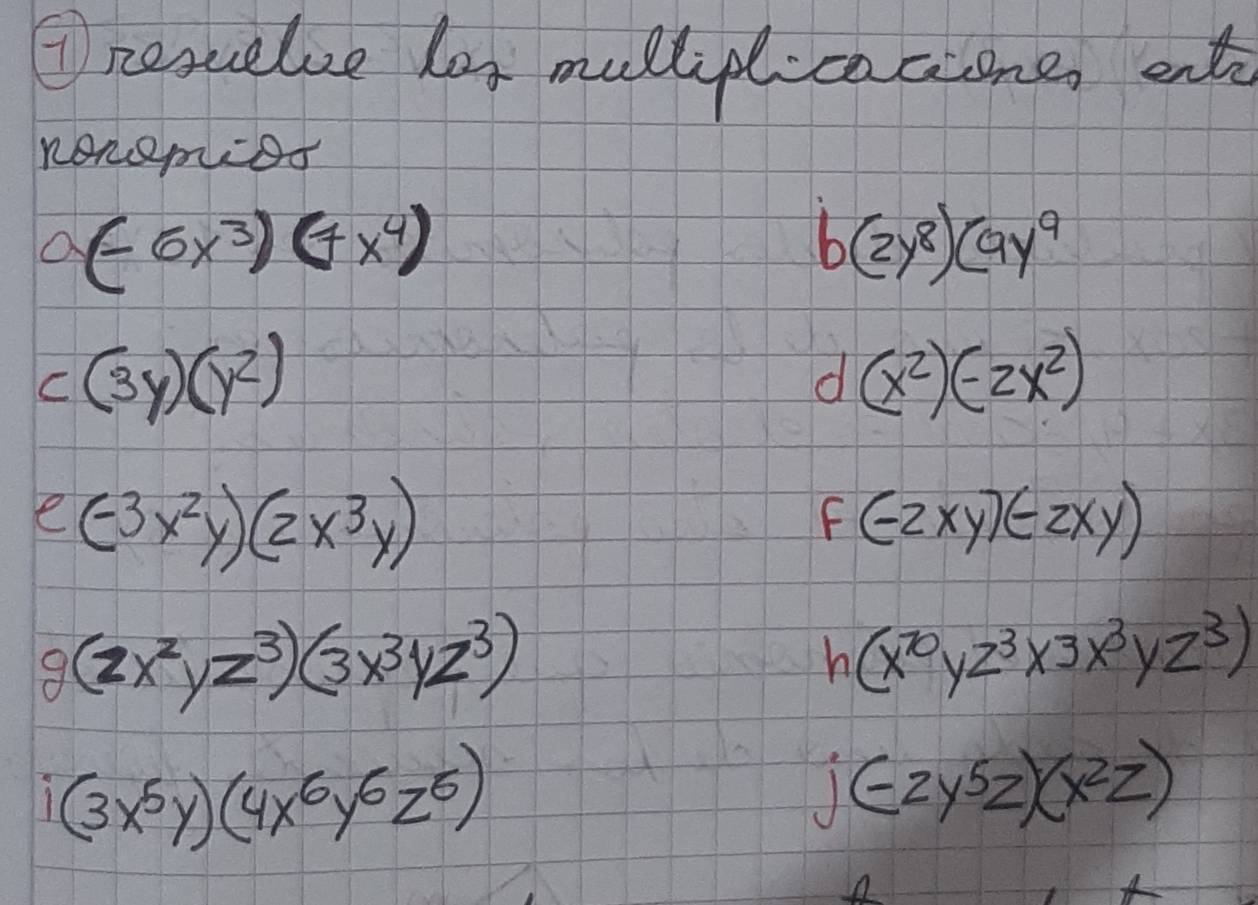 1 resuelve las multiplicaciones entr
monomios
a (-6x³) (7x⁴) b (2y⁸)(9y⁹
c (3y)(y²) d (x²)(-2x²)
e (-3x²y)(2x³y) f (-2xy)(-2xy)
g (2x²yz³)(3x³yz³) h (x¹⁰yz³x3x³yz³)
i (3x⁵y)(4x⁶y⁶z⁶) j (-2y⁵z)(x²z)